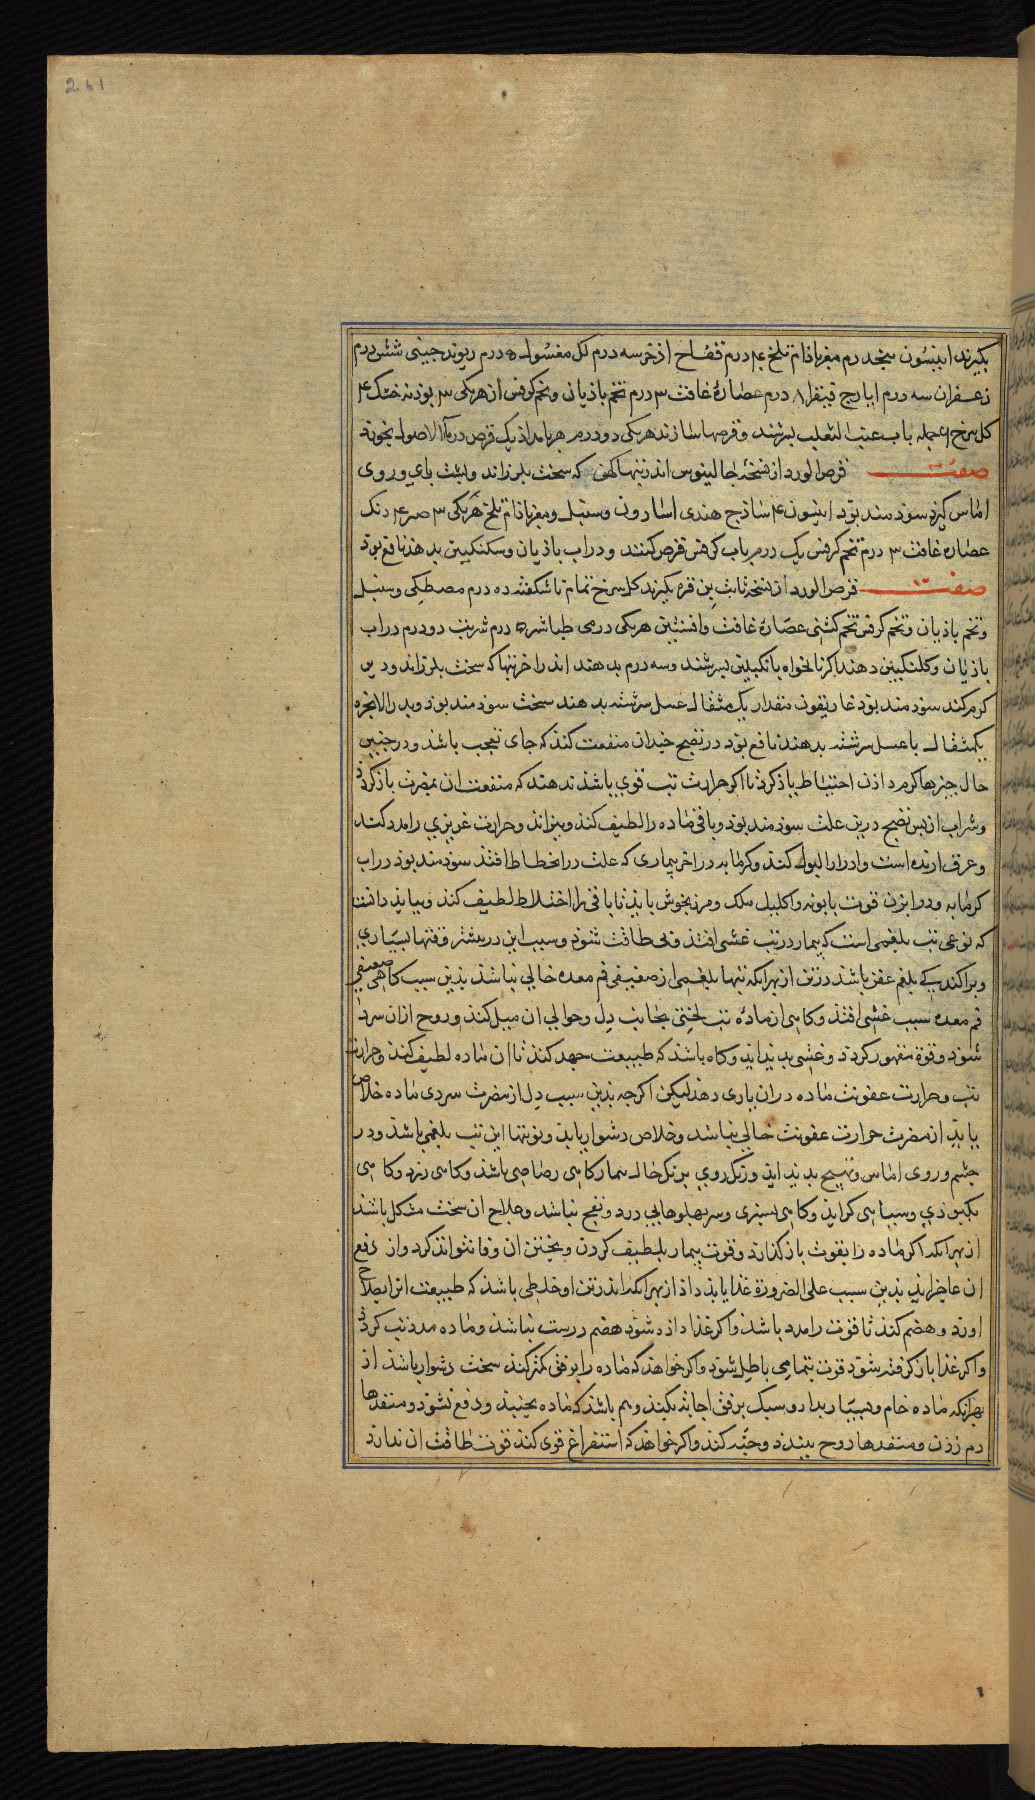 261
بکیرند انیسون پنجدرم مغز باذام تلخ ۴ درم فقاح اذخر سه درم لک مغسول ۵ درم ریوند چینی شش درم
زعفران سه درم ایارج فیقرا ۸ درم عصارهٔ غافت ۳ درم تخم باذیان وتخم کرفس از هریکی ۳ بوذنه خشک ۴
کل سرخ باب عنب الثعلب بسرشند وقرصها سازند هریکی دو درم هر بامداذ یک قرص در ماالاصول بخورند
صفت قرص الورد از نسخهٔ جالینوس اندر تبها کهن که سخت بلرزاند وپشت بای وروی
اماس کیرد سوذمند بوذ انیسون ۴ ساذج هندی اسارون وسنبل ومغز باذام تلخ هریکی ۳ صبر ۴
عصاره غافت ۳ درم تخم کرفس یک درم باب کرفس قرص کنند ودر اب باذیان وسکنکبین بدهند نافع بوذ
صفت قرص الورد از نسخهٔ ثابت بن قره بکیرند کل سرخ تمام ناشکفته ده درم مصطکی وسنبل
وتخم باذیان وتخم کرفس تخم کشنی عصارهٔ غافت وافسنتین هریکی درمی طباشر ۵ درم شربت دو درم در اب
باذیان وکلنکبین دهند اکر نانخواه بانکبین بسرشند وسه درم بدهند اندر اخر تبها که سخت بلرزاند ودیر
کرم کند سوذمند بوذ غاریقون مقدار یک مثقال عسل سرشته بدهند سخت سوذمند بوذ وبذرالانجره
یکمثقال باعسل سرشته بدهند نافع بوذ در نضج چندان منفعت کند که جای تعجب باشد ودر چنین
حال چیزها کرم داذن احتیاط باذ کرذ تا اکر حرارت تب قوی باشد ندهند که منفعت ان بمضرت باز کردذ
وشراب از پس نضج درین علت سوذمند بوذ وباقی ماده را لطیف کند وبپزاند وحرارت غریزی را مدد کند
وعرق ارنده است وادرار البول کند وکرمابه در اخر بیماری که علت در انحطاط افتذ سوذمند بوذ در اب
کرمابه ودر ابزن قوت بابونه واکلیل ملک ومرزنجوش بایذ تا باقی را اخلاط لطیف کند وببایذ دانست
که نوعی تب بلغمی است که بیمار در تب غشی افتذ وبی طاقت شوذ وسبب این در بیشتر وقتها بسیاری
وپراکندکی بلغم عفن باشد در تن از بهر انکه تبها بلغمی از ضعیفی فم معده خالی نباشد بذین سبب کاهی ضعیفی
فم معده سبب غشی افتذ وکاهی از مادهٔ تب لختی بجانب دل وحوالی ان میل کند وروح ازان سرد
شوذ وقوة مقهور کردذ وغشی بدیذ ایذ وکاه باشد که طبیعت جهد کند تا ان ماده لطیف کند وحرارت
تب وحرارت عفونت ماده دران یاری دهد لیکن اکرچه بذین سبب دل از مضرت سردی ماده خلاص
یابذ از مضرت حرارت عفونت خالی نباشد وخلاص دشوار یابذ ونوبتها این تب بلغمی باشد ودر
چشم وروی اماس وتهیج بدیذ ایذ ورنک روی بر یک حال نماند کاهی رصاصی باشد وکاهی زرد وکاهی
بکبوذی وسیاهی کرایذ وکاهی بسبزی وسر پهلوهابی درد ونفخ نباشد وعلاج ان سخت مشکل باشد
از بهر انکه اکر ماده را بقوت باز کذارد وقوت بیمار بلطیف کردن وپختن ان وفا نتوانذ کرد واز دفع
ان عاجز ایذ بذین سبب علی الضرورة غذا بایذ داذ از بهر انکه اندر تن او خلطی باشد که طبیعت انرا بصلاح
اورد وهضم کند تا قوت را مدد باشد واکر غذا داذه شوذ هضم درست نباشد وماده مدد تب کردذ
واکر غذا باز کرفته شوذ قوت بتمامی باطل شوذ واکر خواهد که ماده را برفق کمتر کند سخت دشوار باشد از
بهر انکه ماده خام وبسیار بدارو سبک برفق اجابت نکند وبیم باشد که ماده بجنبد ودفع نشوذ ومنفذها
دم زدن ومنفذها روح ببندذ وخبه کند واکر خواهد که استفراغ قوی کند قوت طاقت ان ندارد